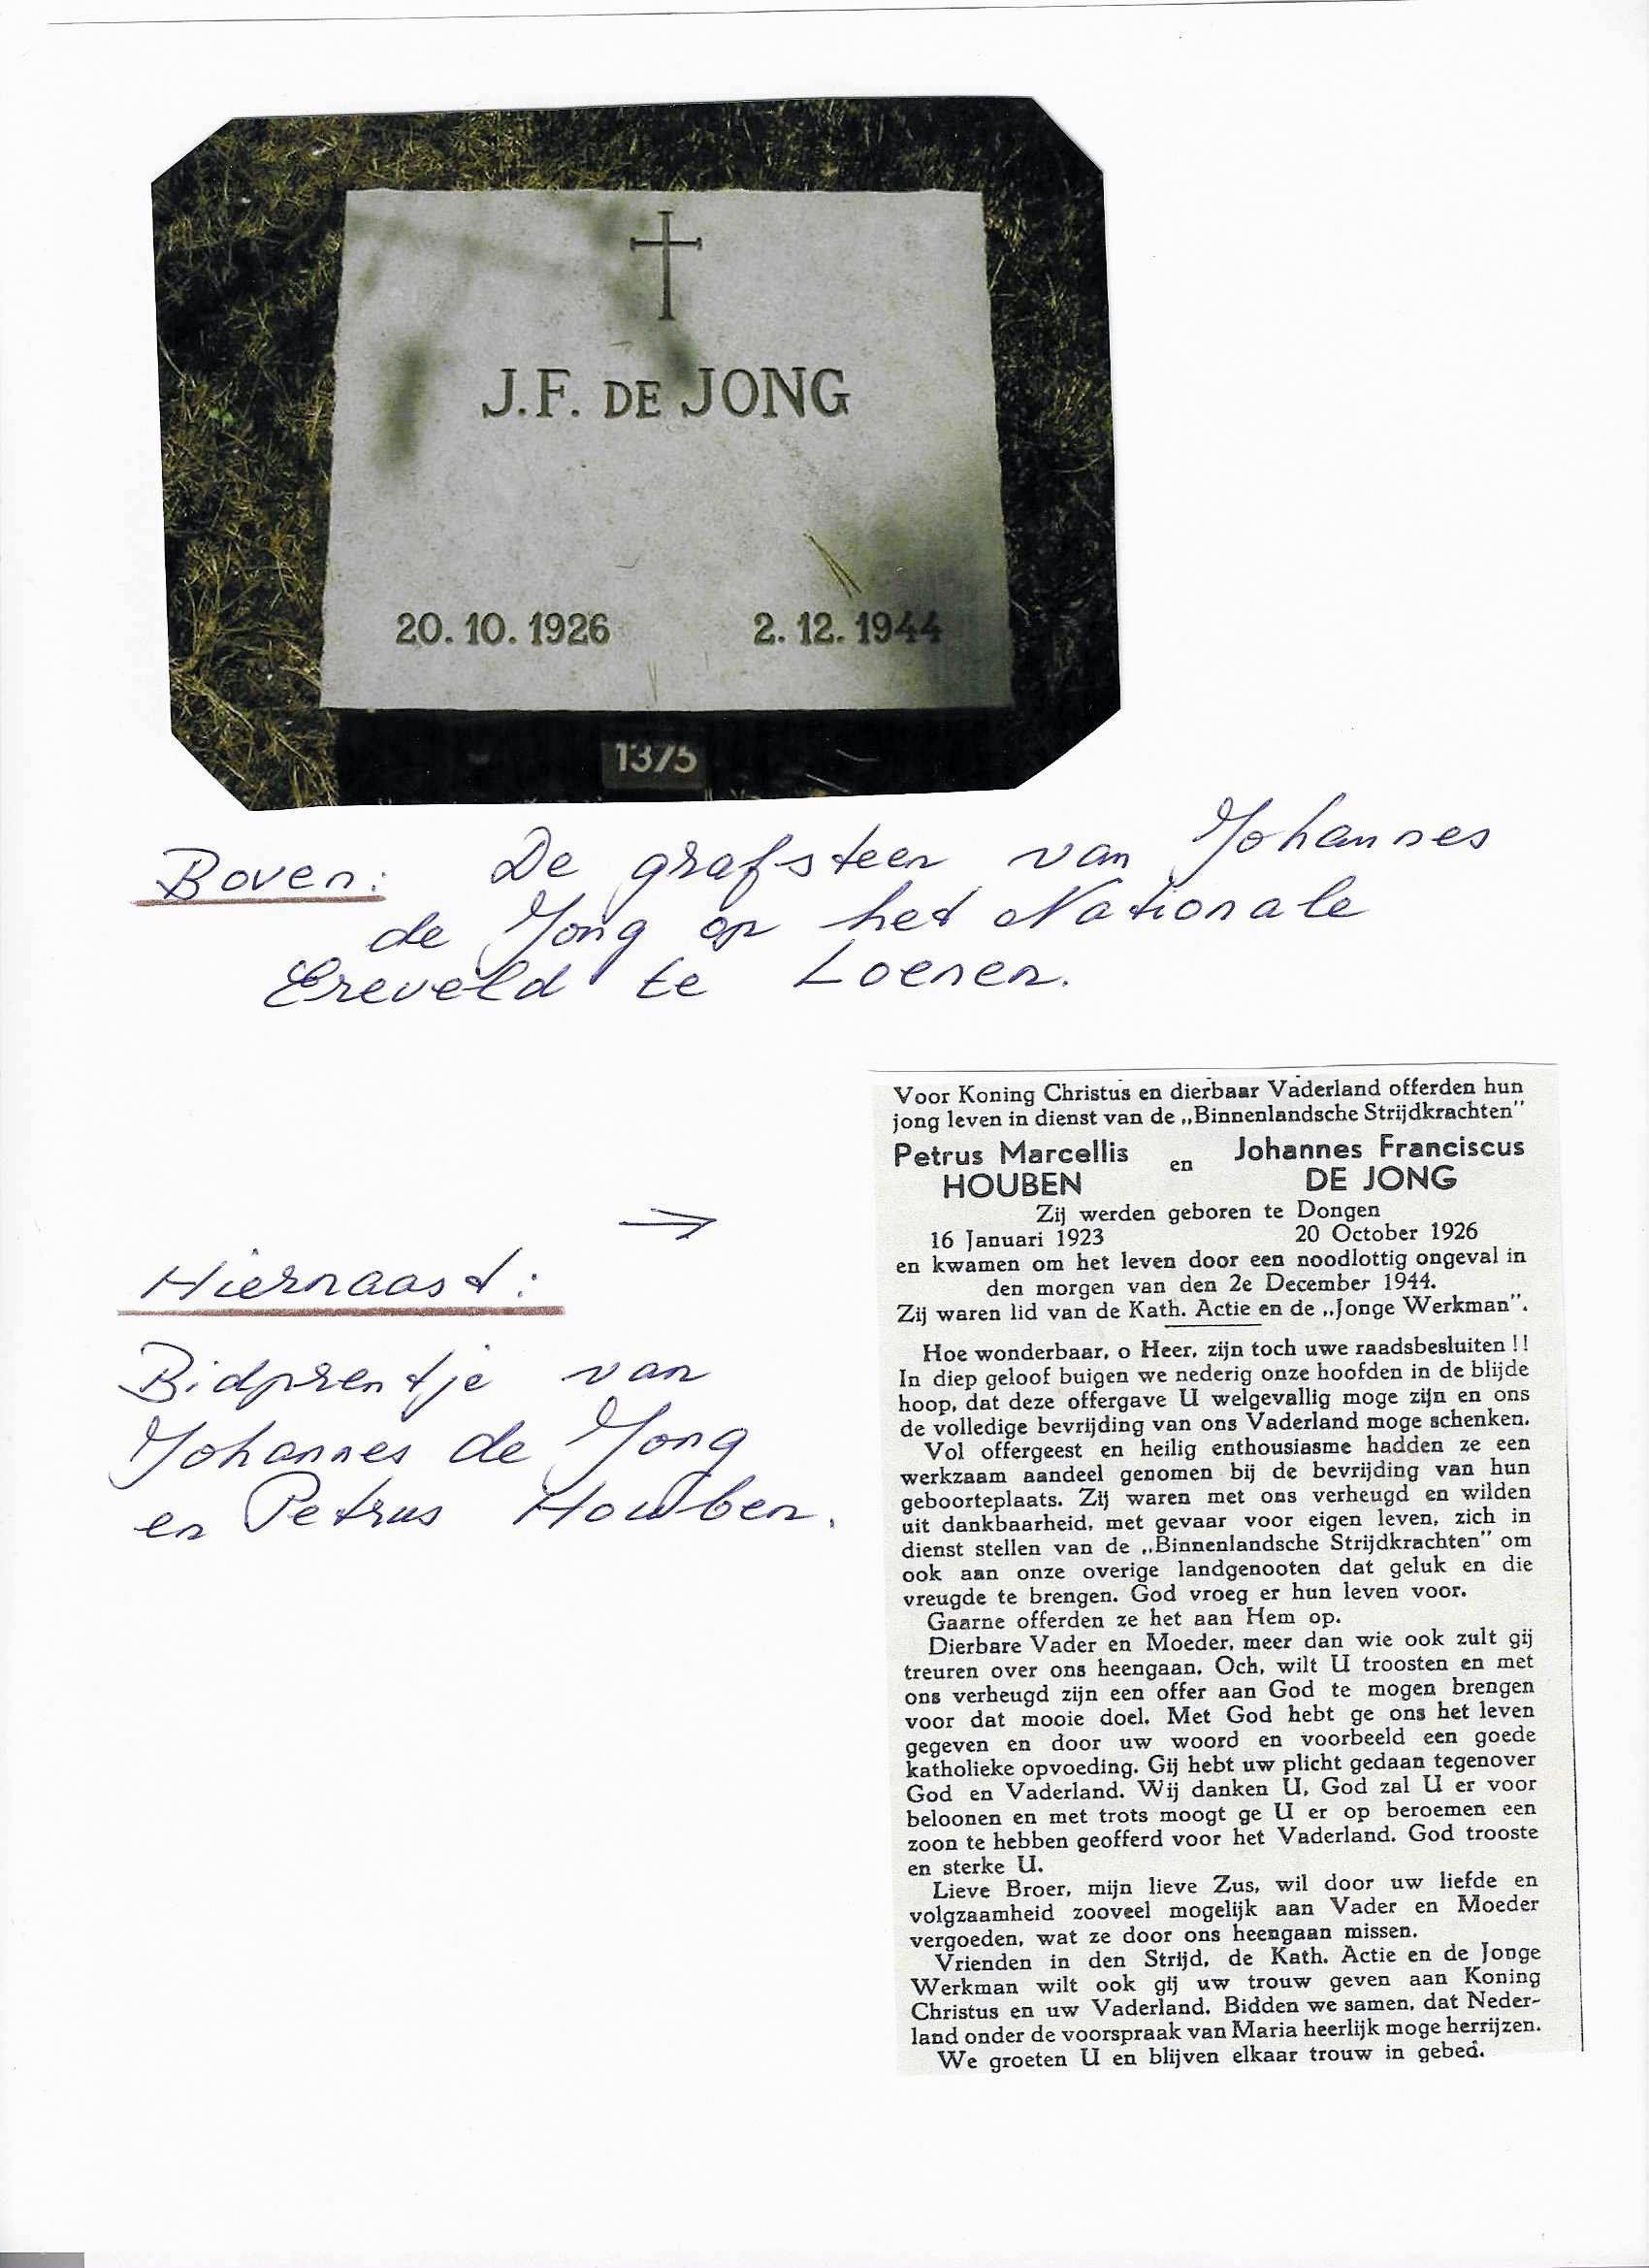 J.F. DE JONG
20.10.1926 2.12.1944
1375
Boven: De grafsteen van Johannes
de Jong op het Nationale
Ereveld te Loenen.
Hiernaast:
Bidprentje van
Johannes de Jong
en Petrus Houben.
Voor Koning Christus en dierbaar Vaderland offerden hun
jong leven in dienst van de „Binnenlandsche Strijdkrachten”
Petrus Marcellis en Johannes Franciscus
HOUBEN DE JONG
Zij werden geboren te Dongen
16 Januari 1923 20 October 1926
en kwamen om het leven door een noodlottig ongeval in
den morgen van den 2e December 1944.
Zij waren lid van de Kath. Actie en de „Jonge Werkman”.
Hoe wonderbaar, o Heer, zijn toch uwe raadsbesluiten !!
In diep geloof buigen we nederig onze hoofden in de blijde
hoop, dat deze offergave U welgevallig moge zijn en ons
de volledige bevrijding van ons Vaderland moge schenken.
Vol offergeest en heilig enthousiasme hadden ze een
werkzaam aandeel genomen bij de bevrijding van hun
geboorteplaats. Zij waren met ons verheugd en wilden
uit dankbaarheid, met gevaar voor eigen leven, zich in
dienst stellen van de „Binnenlandsche Strijdkrachten” om
ook aan onze overige landgenooten dat geluk en die
vreugde te brengen. God vroeg er hun leven voor.
Gaarne offerden ze het aan Hem op.
Dierbare Vader en Moeder, meer dan wie ook zult gij
treuren over ons heengaan. Och, wilt U troosten en met
ons verheugd zijn een offer aan God te mogen brengen
voor dat mooie doel. Met God hebt ge ons het leven
gegeven en door uw woord en voorbeeld een goede
katholieke opvoeding. Gij hebt uw plicht gedaan tegenover
God en Vaderland. Wij danken U, God zal U er voor
beloonen en met trots moogt ge U er op beroemen een
zoon te hebben geofferd voor het Vaderland. God trooste
en sterke U.
Lieve Broer, mijn lieve Zus, wil door uw liefde en
volgzaamheid zooveel mogelijk aan Vader en Moeder
vergoeden, wat ze door ons heengaan missen.
Vrienden in den Strijd, de Kath. Actie en de Jonge
Werkman wilt ook gij uw trouw geven aan Koning
Christus en uw Vaderland. Bidden we samen, dat Neder-
land onder de voorspraak van Maria heerlijk moge herrijzen.
We groeten U en blijven elkaar trouw in gebed.